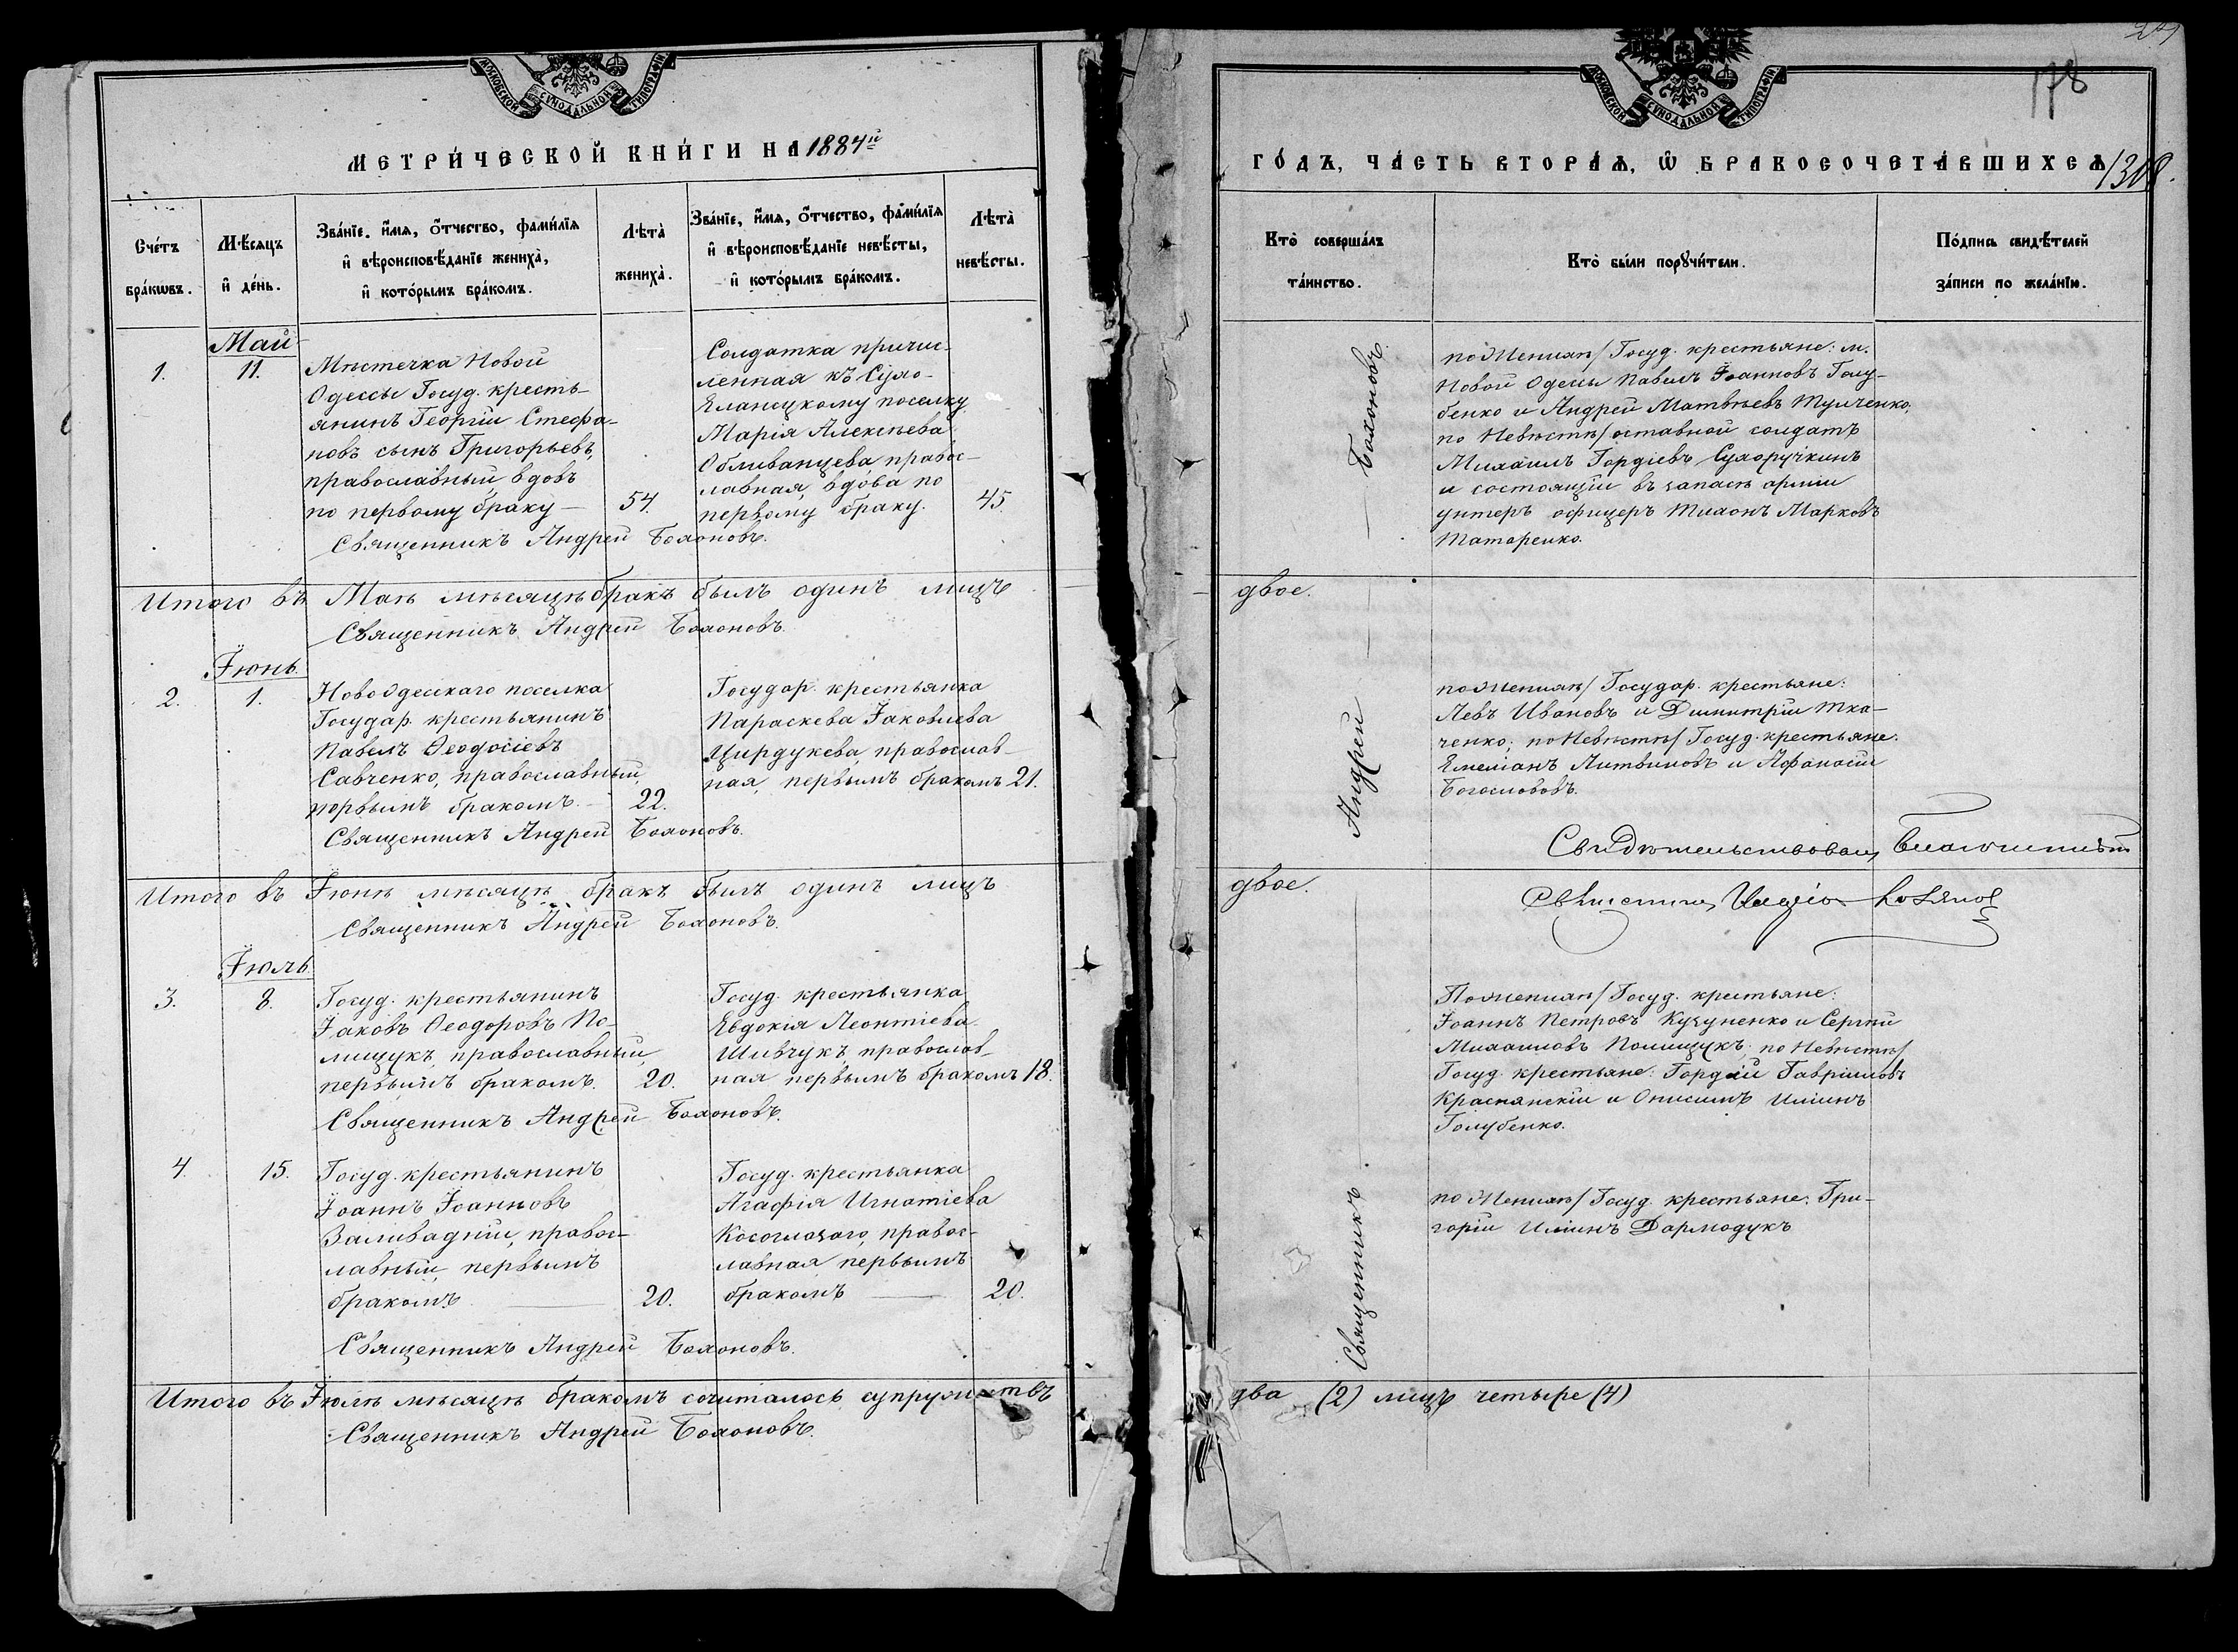 МОСКОВСКОЙ СУНОДАЛЬНОЙ ТИПОГРАФІИ
МЕТРИ́ЧЕСКОЙ КНИ́ГИ НА 1884й
Сче́тъ бра́кωвъ.
Мѣ́сяцъ и҆ де́нь.
Зва́нїе. и҆́мя, ѻ҆́тчество, фами́лїя
и҆ вѣроисповѣ́данїе жениха̀,
и҆ кото́рымъ бра́комъ.
Лѣта̀
жениха̀.
Зва́нїе, и҆́мя, ѻ҆́тчество, фами́лїя
и҆ вѣроисповѣ́данїе невѣ́сты,
и҆ кото́рымъ бра́комъ.
Лѣта̀
невѣ́сты.
Май
1.
11.
Мѣстечка Новой
Одессы Госуд. кресть-
янинъ Георгій Стефа-
новъ сынъ Григорьевъ,
православный, вдовъ
по первому браку —
54.
Солдатка причис-
ленная къ Сухо-
Еланецкому поселку
Марія Алексѣева
Обливанцева, правос-
лавная, вдова по
первому браку.
45.
Священникъ Андрей Бохоновъ.
Итого въ Маѣ мѣсяцѣ бракъ былъ одинъ лицъ
Священникъ Андрей Бохоновъ.
Іюнь.
2.
1.
НовоОдесскаго поселка
Государ. крестьянинъ
Павелъ Ѳеодосіевъ
Савченко, православный,
первымъ бракомъ. —
22.
Государ. крестьянка
Параскева Іаковлева
Цирдукева, православ-
ная, первымъ бракомъ
21.
Священникъ Андрей Бохоновъ.
Итого въ Іюнѣ мѣсяцѣ бракъ былъ одинъ лицъ
Священникъ Андрей Бохоновъ.
Іюль.
3.
8.
Госуд. крестьянинъ
Іаковъ Ѳеодоровъ По-
лищукъ, православный,
первымъ бракомъ.
20.
Госуд. крестьянка
Евдокія Леонтіева
Шивчукъ, православ-
ная первымъ бракомъ
18.
Священникъ Андрей Бохоновъ.
4.
15.
Госуд. крестьянинъ
Іоаннъ Іоанновъ
Заливадній, правос-
лавный, первымъ
бракомъ
20.
Госуд. крестьянка
Агафія Игнатіева
Косоглазаго, правос-
лавная первымъ
бракомъ
20.
Священникъ Андрей Бохоновъ.
Итого въ Іюлѣ мѣсяцѣ бракомъ сочиталось супружествъ
Священникъ Андрей Бохоновъ.
МОСКОВСКОЙ СУНОДАЛЬНОЙ ТИПОГРАФІИ
178
ГО́ДЪ, ЧА́СТЬ ВТОРА́Ѧ, Ѽ БРАКОСОЧЕТА́ВШИХСѦ
1308.
Кто̀ соверша́лъ
та́инство.
Кто̀ бы́ли порꙋчи́тели.
По́дпись свидѣ́телей
за́писи по жела́нїю.
Священникъ Андрей Бохоновъ.
по Женихѣ/ Госуд. крестьяне: м.
Новой Одессы Павелъ Іоанновъ Голу-
бенко и Андрей Матвѣевъ Тулченко,
по Невѣстѣ/ оставной солдатъ
Михаилъ Гордіевъ Сухоручкинъ
и состоящій въ запасѣ арміи
унтеръ офицеръ Тихонъ Марковъ
Татаренко.
двое.
по Женихѣ/ Государ. крестьяне:
Левъ Ивановъ и Димитрій Тка-
ченко; по Невѣстѣ/ Госуд. крестьяне:
Емеліанъ Литвиновъ и Афанасій
Богословъ.
Свидѣтельствовалъ Благочинный
двое.
По Женихѣ/ Госуд. крестьяне:
Іоаннъ Петровъ Кузуненко и Сергій
Михаиловъ Полищукъ, по Невѣстѣ/
Госуд. крестьяне: Гордій Гавріиловъ
Краснянскій и Онисимъ Иліинъ
Голубенко.
по Женихѣ/ Госуд. крестьяне: Гри-
горій Иліинъ Дармодукъ
два (2) лицъ четыре (4)